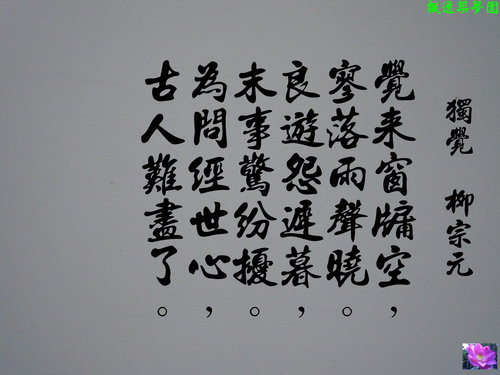 獨覺　柳宗元
覺来窗牖空，
寥落雨聲曉。
良遊怨遲暮，
末事驚紛擾。
為問經世心，
古人難盡了。
楓逸築夢園